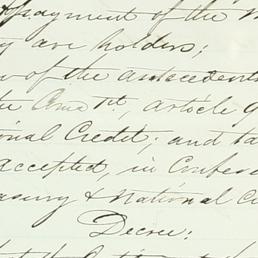 payment of the
y are holders;
of the antecedents
article 9
onal Credit; and ta
accepted, in Confere
asury & National C
Decree: